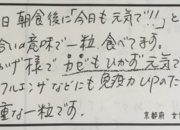 日 朝食後に「今日も元気で!!」と
合いの意味で一粒、食べてます。
かげ様で カゼもひかず元気で
フルエンザなどにも免疫力UPのた
重な一粒です。
京都府 女